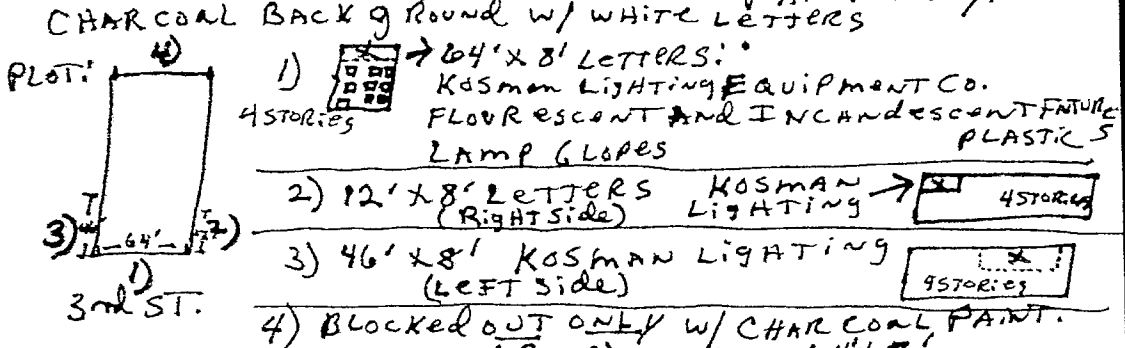 CHARCOAL BACKgROUND W/ WHITE LETTERS
PLOT:
4)
1)
4 STORIES
64' X 8' LETTERS:
KOSMAN LIGHTING EQUIPMENT CO.
FLOURESCENT AND INCANDESCENT FIXTURE
PLASTICS
LAMP GLOPES
2) 12' X 8' LETTERS KOSMAN
(RIGHT SIDE) LIGHTING
X
4 STORIES
3)
64'
2)
1)
3rd ST.
3) 46' X 8' KOSMAN LIGHTING
(LEFT SIDE)
X
4 STORIES
4) BLOCKED OUT ONLY W/ CHARCOAL PAINT.